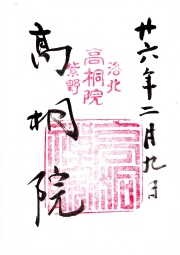 廿六年二月九日
洛北
高桐院
紫野
高桐院